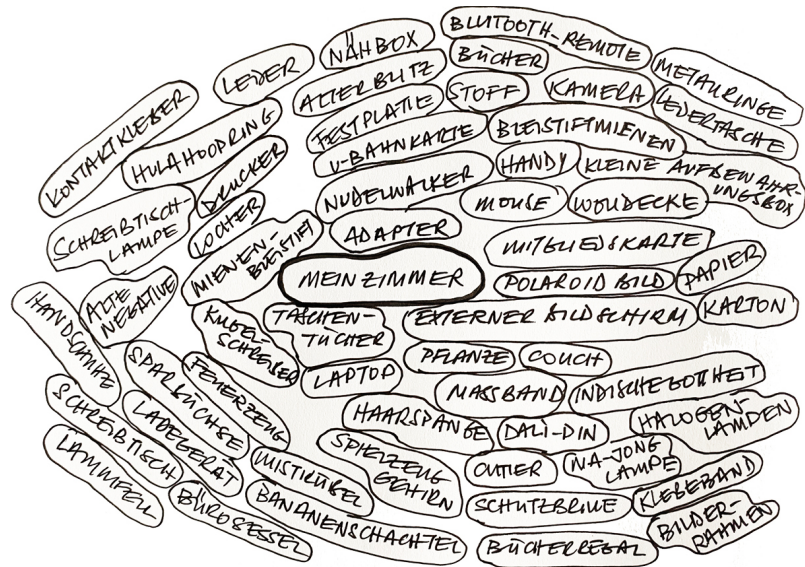 BLUTOOTH-REMOTE
NÄHBOX
BÜCHER
METALLRINGE
LEDER
ALTER BLITZ
STOFF
KAMERA
LEDERTASCHE
KONTAKTKLEBER
HULAHOOPRING
FESTPLATTE
U-BAHNKARTE
BLEISTIFTMIENEN
DRUCKER
NUDELWALKER
HANDY
KLEINE AUFBEWAHR-
UNGSBOX
SCHREIBTISCH-
LAMPE
LOCHER
MOUSE
WOLLDECKE
ADAPTER
MIENEN-
BLEISTIFT
MITGLIEDSKARTE
MEIN ZIMMER
POLAROID BILD
PAPIER
HANDSCHUHE
ALTE
NEGATIVE
KUGEL-
SCHREIBER
TASCHEN-
TÜCHER
EXTERNER BILDSCHIRM
KARTON
PFLANZE
COUCH
SPARBÜCHSE
FEUERZEUG
LAPTOP
MASSBAND
INDISCHE GOTTHEIT
SCHREIBTISCH
LADEGERÄT
HAARSPANGE
DALI-DIN
HALOGEN-
LAMDEN
LAMMFELL
MISTKÜBEL
SPIELZEUG
GEHIRN
CUTTER
MA-JONG
LAMPE
KLEBEBAND
BÜROSESSEL
BANANENSCHACHTEL
SCHUTZBRILLE
BILDER-
RAHMEN
BÜCHERREGAL